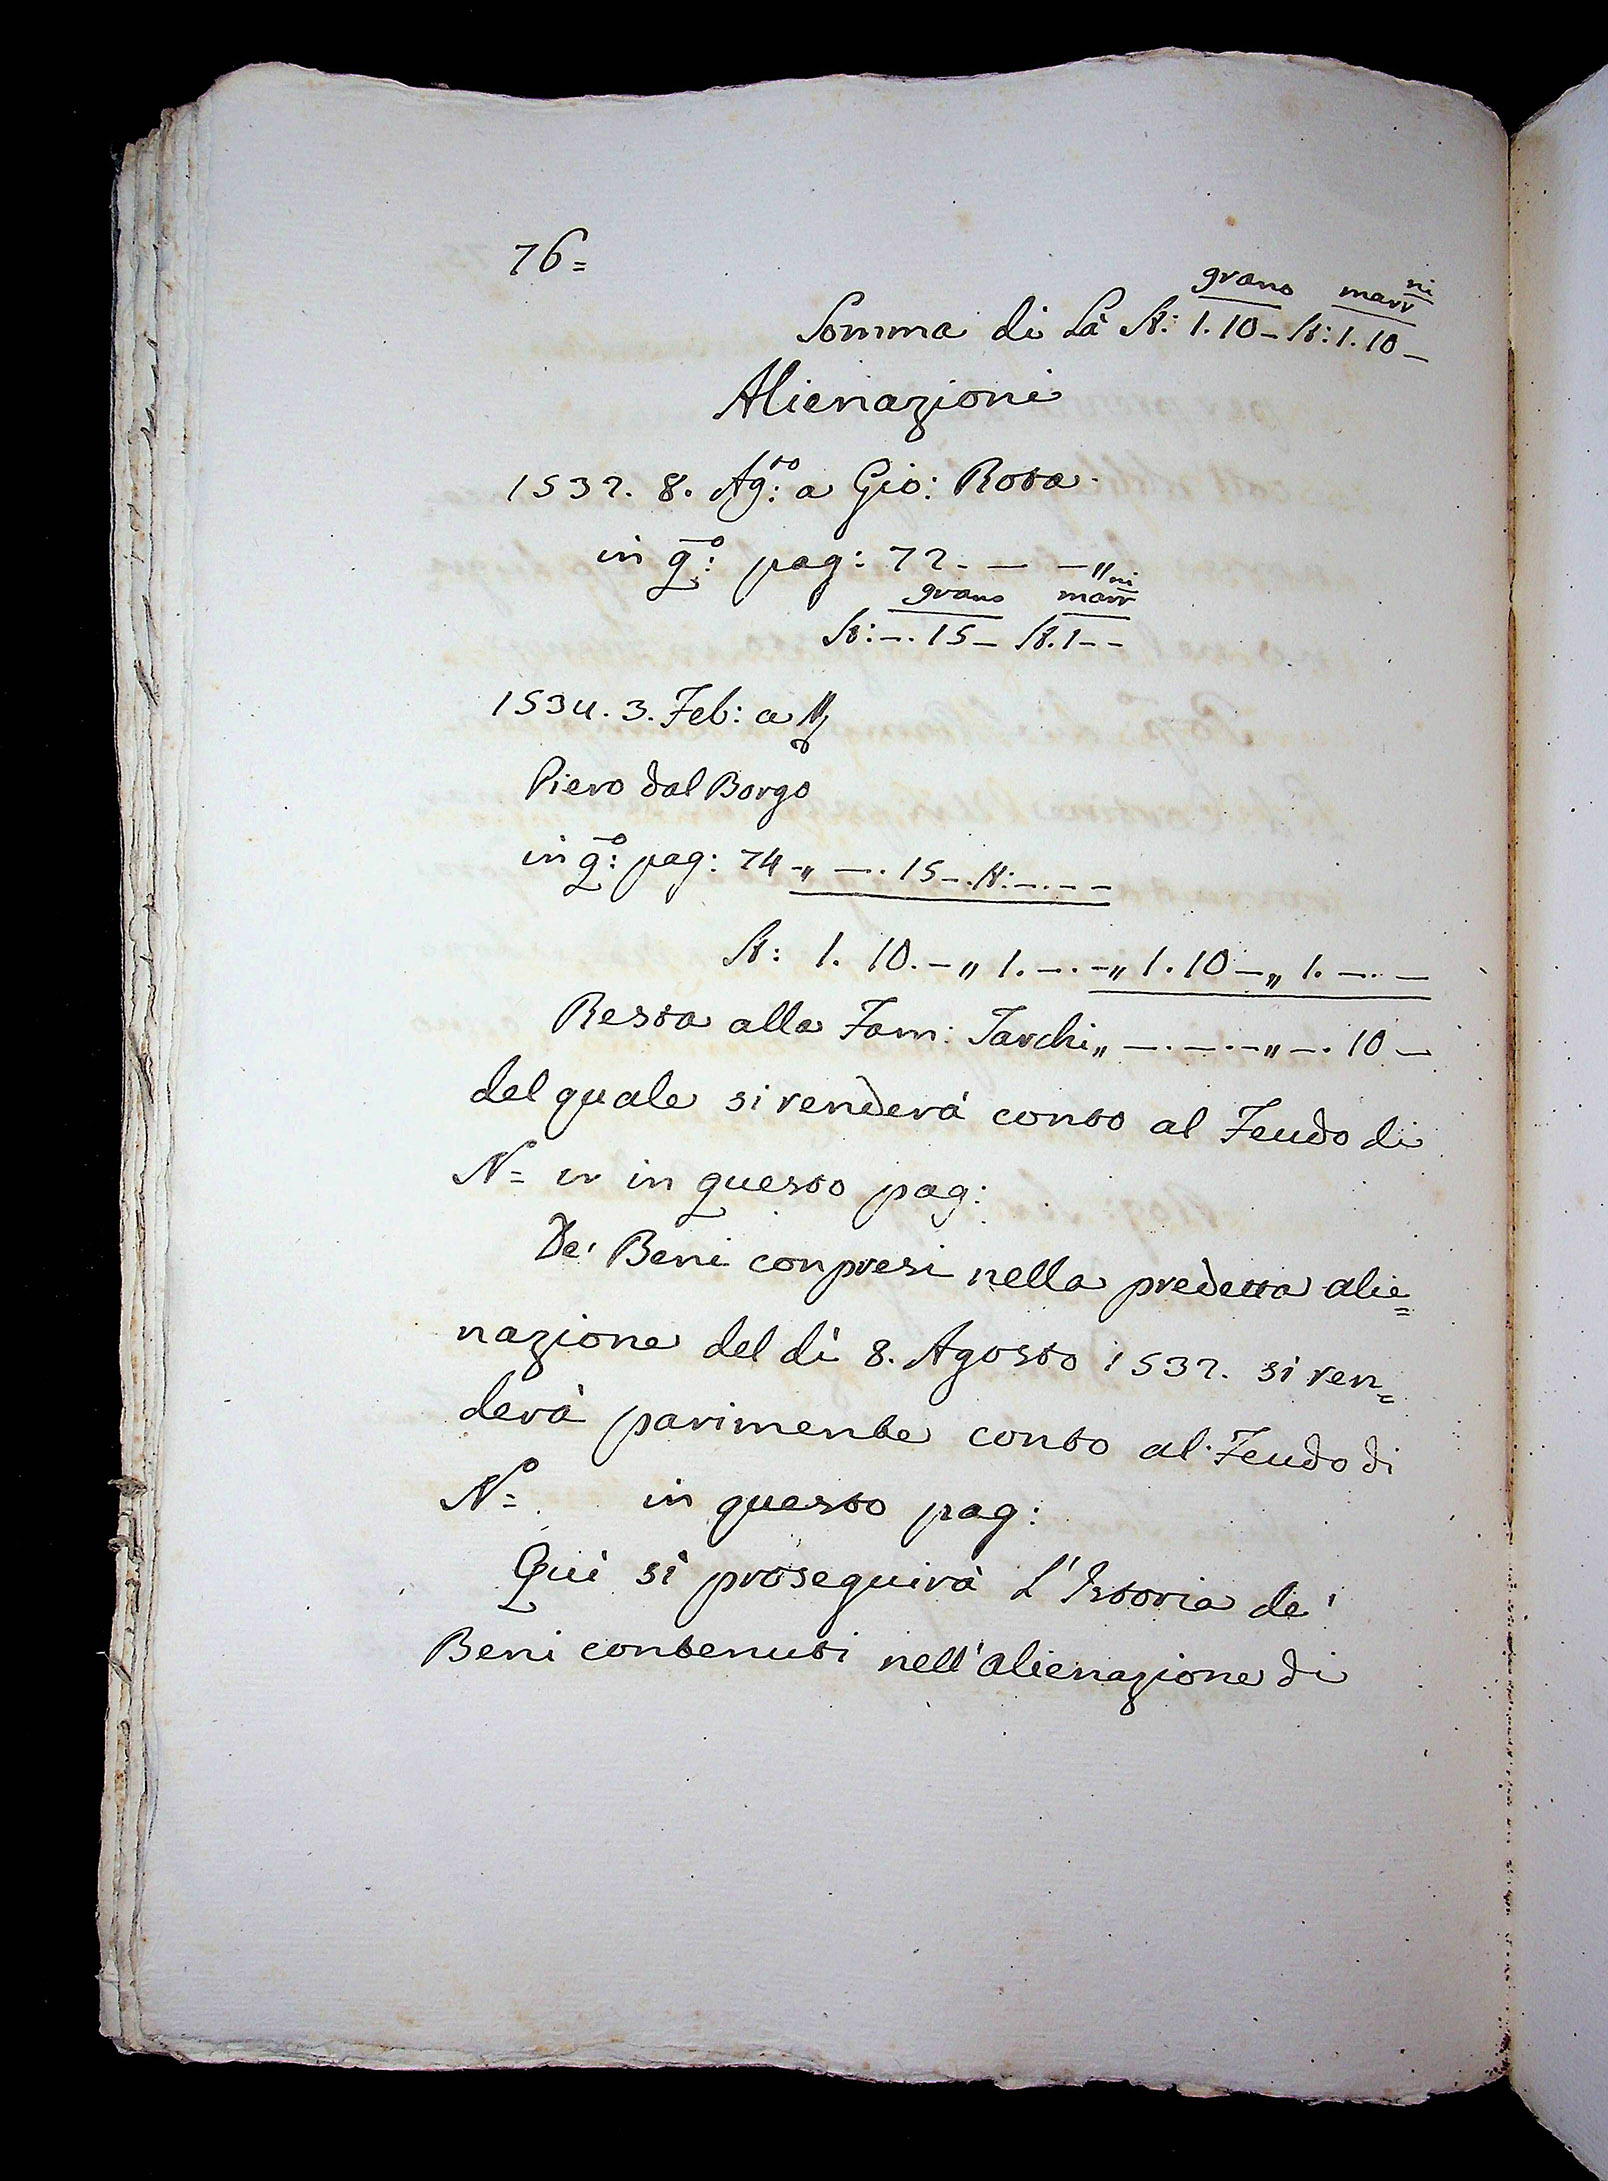 76=
grano marr.ni
Somma di Là St: 1. 10 - St: 1. 10 -
Alienazioni
1532. 8. Ag:to a Gio: Rota
in q:o pag: 72. - - -"
grano marr.ni
St: -. 15 - St. 1 - -
1534. 3. Feb: a
Piero dal Borgo
in q:o pag: 74 -" -. 15 -. St: -. - -
St: 1. 10. -" 1. -. -" 1. 10 -" 1. -. -
Resta alla Fam: Tarchi" -. -. -" -. 10 -
del quale si renderà conto al Feudo di
N= in questo pag:
De' Beni conpresi nella predetta alie=
nazione del dì 8. Agosto 1532. si ren=
derà parimente conto al Feudo di
N=o in questo pag:
Quì si proseguirà L'Istoria de'
Beni contenuti nell'alienazione di